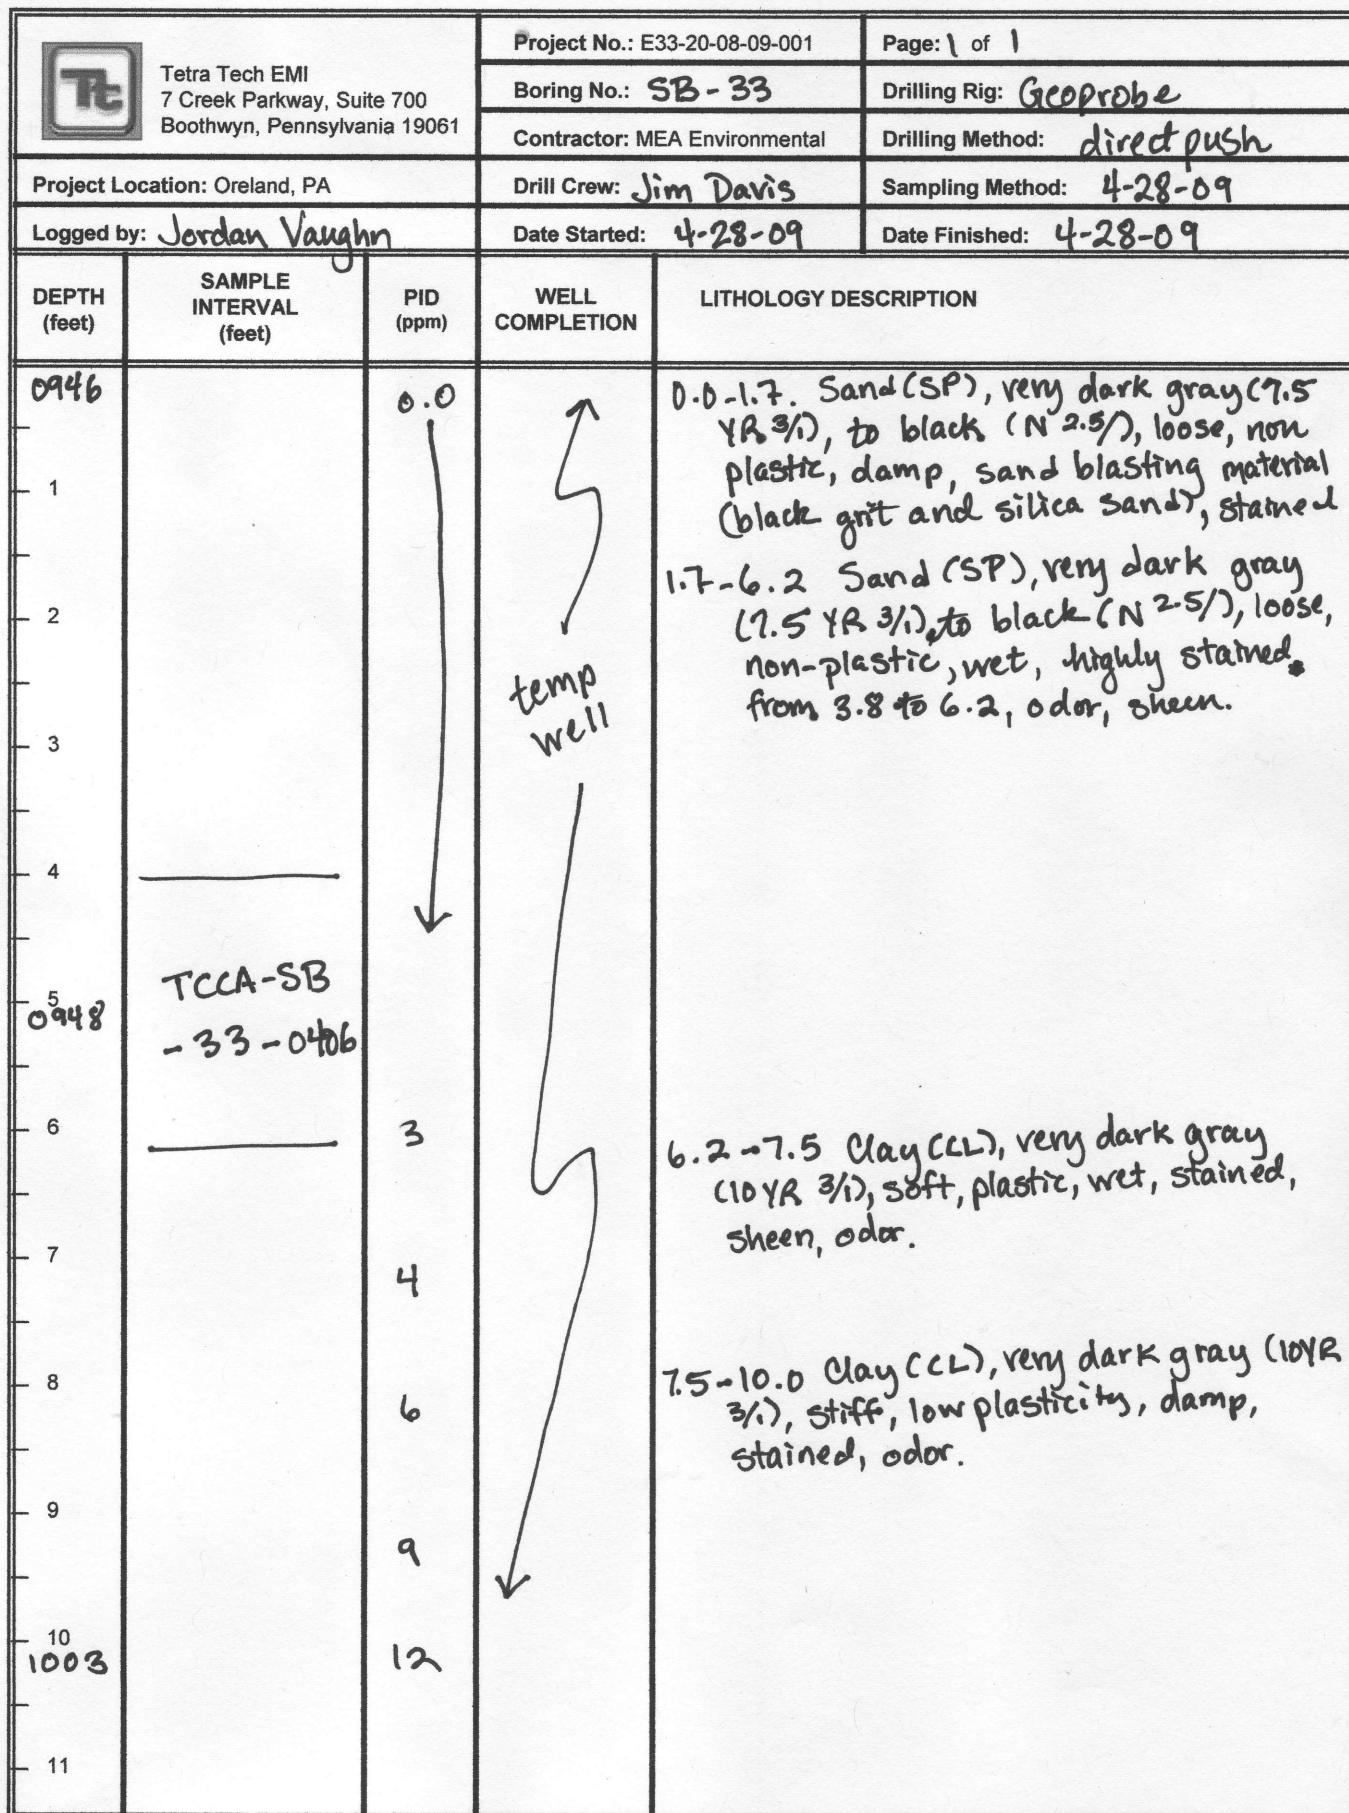 Tt
Tetra Tech EMI
7 Creek Parkway, Suite 700
Boothwyn, Pennsylvania 19061
Project No.: E33-20-08-09-001
Page: 1 of 1
Boring No.: SB-33
Drilling Rig: Geoprobe
Contractor: MEA Environmental
Drilling Method: direct push
Project Location: Oreland, PA
Drill Crew: Jim Davis
Sampling Method: 4-28-09
Logged by: Jordan Vaughn
Date Started: 4-28-09
Date Finished: 4-28-09
DEPTH
(feet)
SAMPLE
INTERVAL
(feet)
PID
(ppm)
WELL
COMPLETION
LITHOLOGY DESCRIPTION
0946
1
2
3
4
5
0948
6
7
8
9
10
1003
11
TCCA-SB
-33-0406
0.0
3
4
6
9
12
temp
well
0.0-1.7. Sand (SP), very dark gray (7.5
YR 3/1), to black (N 2.5/), loose, non
plastic, damp, sand blasting material
(black grit and silica sand), stained
1.7-6.2 Sand (SP), very dark gray
(7.5 YR 3/1), to black (N 2.5/), loose,
non-plastic, wet, highly stained.
from 3.8 to 6.2, odor, sheen.
6.2-7.5 Clay (CL), very dark gray
(10 YR 3/1), soft, plastic, wet, stained,
sheen, odor.
7.5-10.0 Clay (CL), very dark gray (10YR
3/1), stiff, low plasticity, damp,
stained, odor.